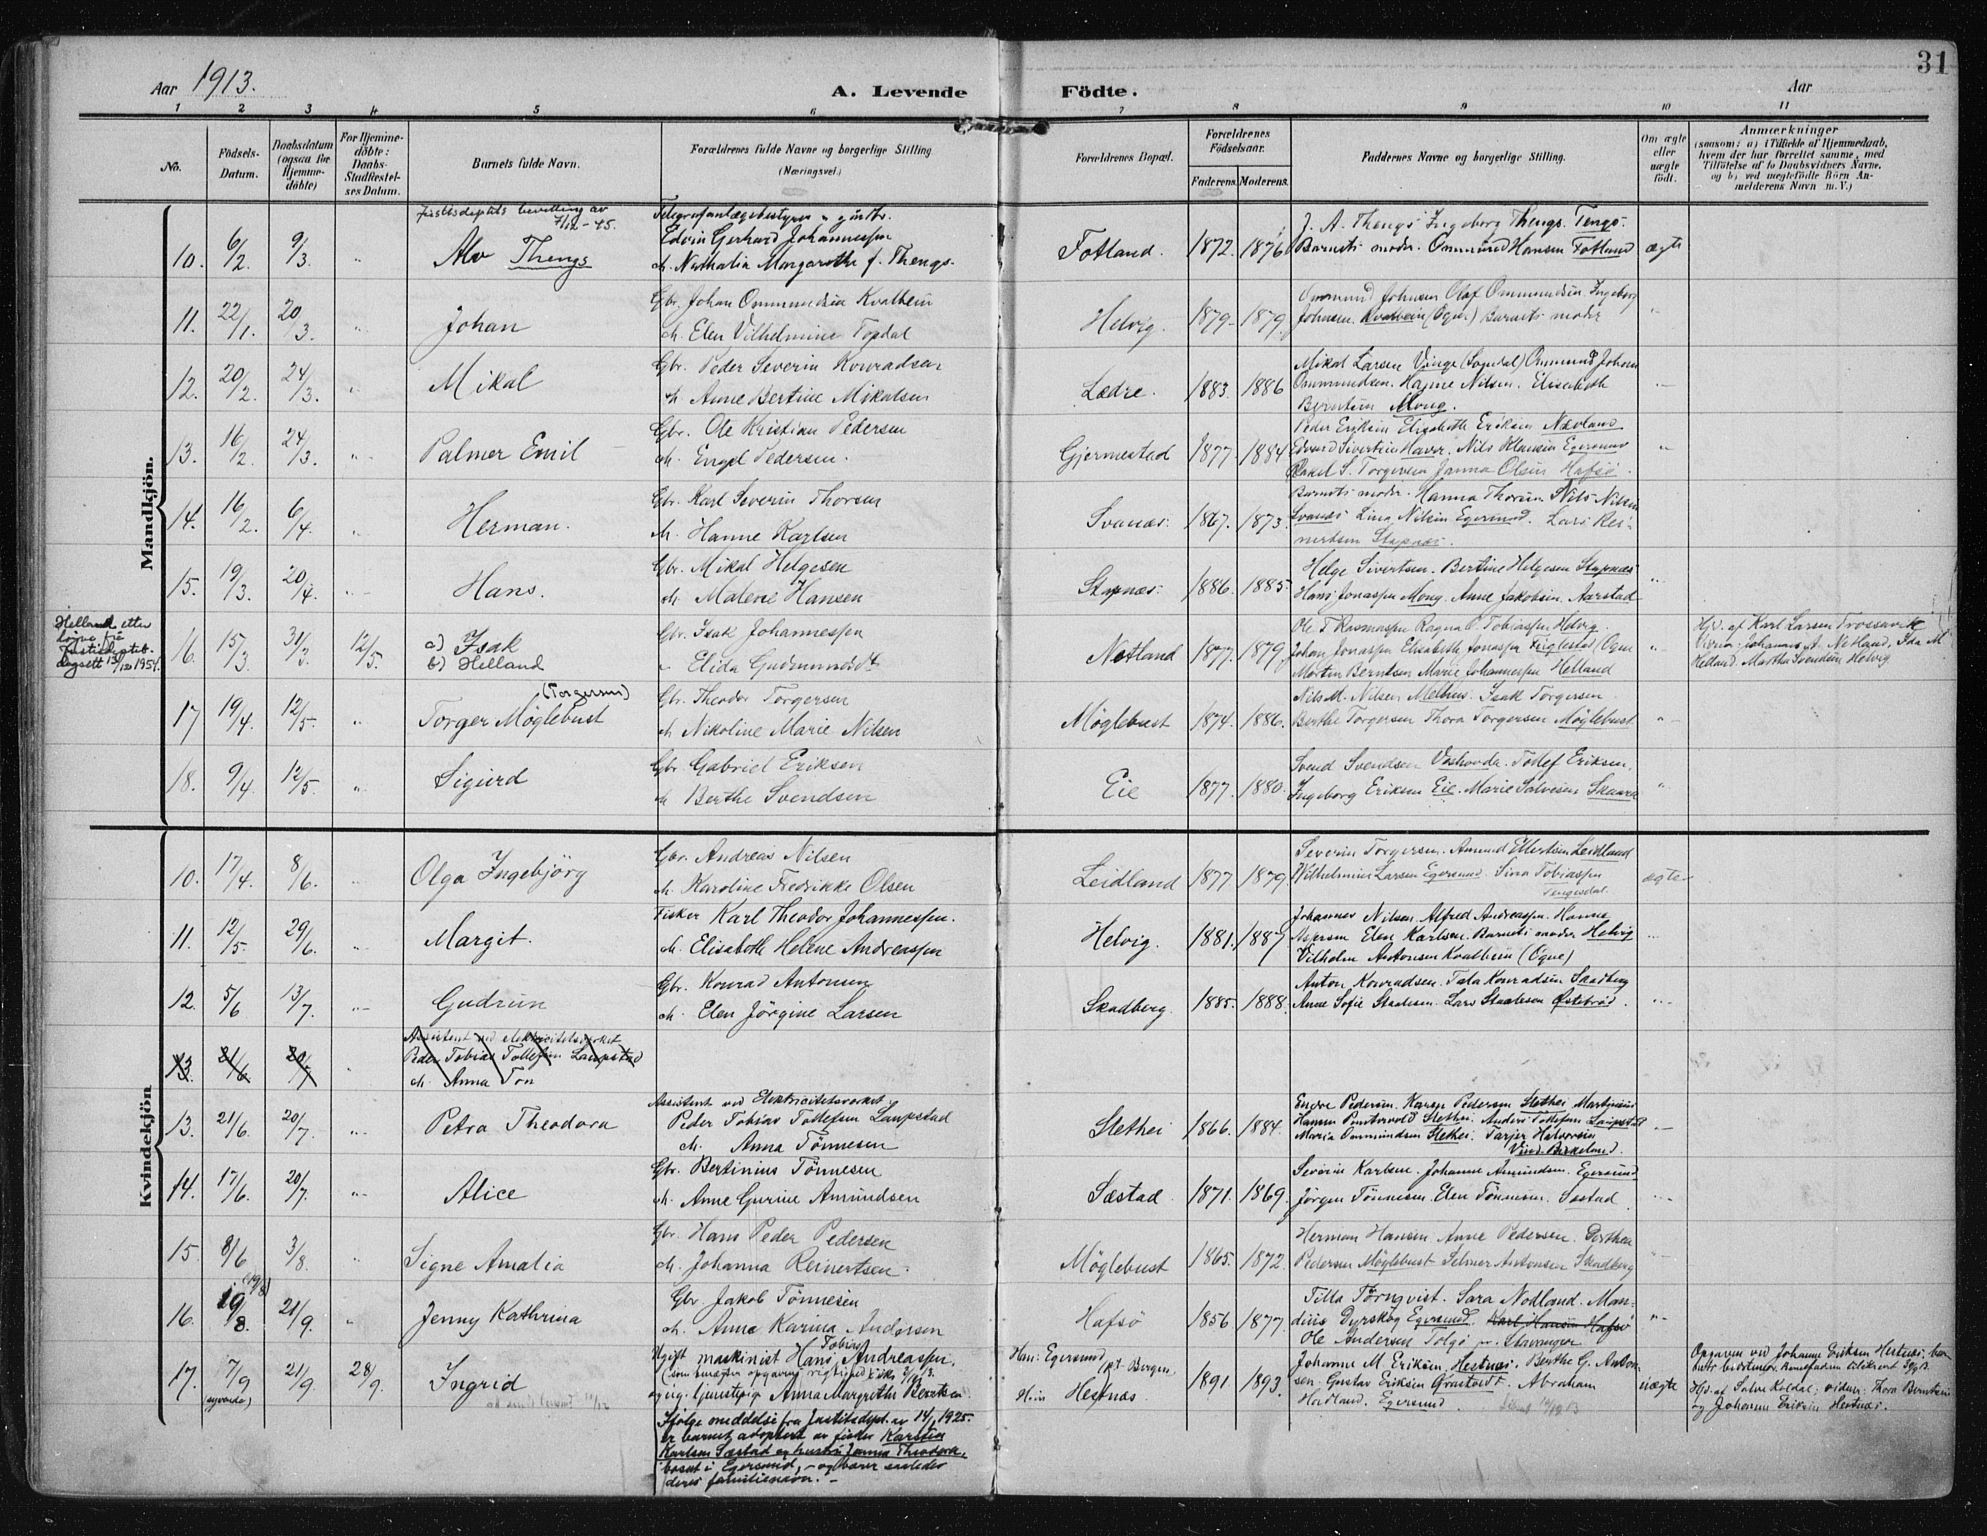 31
Aar 1913. A. Levende Födte. Aar
1 2 3 4 5 6 7 8 9 10 11
No.
Födsels-Datum.
Daabsdatum (ogsaa for Hjemmedöbte)
For Hjemmedöbte: Daabs-Stadfæstelses Datum.
Barnets fulde Navn.
Forældrenes fulde Navne og borgerlige Stilling (Næringsvei.)
Forældrenes Bopæl.
Forældrenes Födselsaar.
Faderens. Moderens.
Faddernes Navne og borgerlige Stilling.
Om ægte eller uægte födt.
Anmærkninger
(saasom: a) i Tilfælde af Hjemmedaab, hvem der har forrettet samme, med Tilföielse af to Daabsvidners Navne, og b) ved uægtefödte Börn Anmelderens Navn m. V.)
Mandkjön.
Justisdeptets bevilling av 7/12-45.
10. 6/2. 9/3. " Alv Thengs
Telegrafanlægsbestyrer & gårdbr.
Edvin Gerhard Johannessen
& Nathalia Margarethe f. Thengs.
Fotland. 1872. 1876
J. A. Thengs Ingeborg Thengs. Tengs.
Barnets moder. Ommund Hansen Fotland ægte
11. 22/1. 20/3. " Johan
Gbr. Johan Ommundsen Kvalbein
& Elen Vilhelmine Topdal
Helvig. 1879. 1879.
Ommund Johnsen Olaf Ommundsen. Ingeborg
Johnsen. Kvalbein (Ogne.) Barnets moder "
12. 20/2. 24/3. " Mikal
Gbr. Peder Severin Konradsen
& Anne Bertine Mikalsen
Lædre. 1883. 1886
Mikal Larsen Vinge (Sogndal) Ommund Johan
Ommundsen. Hanne Nilsen. Elisabeth
Berntsen Mong.
13. 16/2. 24/3. " Palmer Emil
Gbr. Ole Kristian Pedersen
& Engel Pedersen.
Gjermestad 1877. 1884
Peder Eriksen Elisabeth Eriksen Nævland
Edvard Sivertsen Haver. Nils Klausen Egersund
Rakel S. Torgersen Janna Olsen Hafsø. "
14. 16/2. 6/4. " Herman.
Gbr. Karl Severin Thorsen
& Hanne Karlsen
Svanæs. 1867. 1873.
Barnets moder. Hanna Thorsen. Nils Nilsen
Svanæs Lina Nilsen Egersund. Lars Rei-
nertsen Stapnæs. "
15. 19/3. 20/4. " Hans.
Gbr. Mikal Helgesen
& Malene Hansen
Stapnæs. 1886. 1885.
Helge Sivertsen. Bertine Helgesen Stapnæs
Hans Jonassen Mong. Anne Jakobsen. Aarstad "
Helland etter
løyve frå
Justisdeptet.
dagsett 13/12 1954.
16. 15/3. 31/3. 12/5. a) Isak
b) Helland
Gbr. Isak Johannessen
& Elida Gudmundsdt
Netland 1877. 1879
Ole T. Rasmussen Ragna O. Tobiassen Helvig.
Johan Jonassen Elisabeth Jonassen Fuglestad (Ogne
Morten Berntsen Marie Johannessen Helland "
Hjd. af Karl Larsen Trossavik
Netland, Ida M
Helland. Martha Svendsen Helvig
17 19/4. 12/5. " Torger Möglebust (Torgersen)
Gbr. Theodor Torgersen
& Nikoline Marie Nilsen
Möglebust 1874. 1886.
Nils M. Nilsen Melhus. Isak Torgersen.
Berthe Torgersen Thora Torgersen Möglebust "
18. 9/4. 12/5. " Sigurd
Gbr. Gabriel Eriksen
& Berthe Svendsen
Eie 1877. 1880.
Svend Svendsen Tollef Eriksen.
Ingeborg Eriksen Eie. Marie Salvesen Skaara "
Kvindekjön
10. 17/4. 8/6. " Olga Ingebjörg
Gbr. Andreas Nilsen
& Karoline Fredrikke Olsen
Leidland 1877 1879
Severin Torgersen. Amund Ellertsen Leidland
Wilhelmine Larsen Egersund. Sina Tobiassen
Tengesdal. ægte
11. 12/5. 29/6. " Margit.
Fisker Karl Theodor Johannessen.
& Elisabeth Helene Andreassen
Helvig. 1881. 1887
Johannes Nilsen. Alfred Andreassen. Hanne
Elen Karlsen. Barnets moder Helvig
Vilhelm Antonsen Kvalbein (Ogne) "
12. 5/6 13/7. " Gudrun
Gbr. Konrad Antonsen
& Elen Jörgine Larsen
Skadberg. 1885. 1888.
Anton Konradsen. Tala Konradsen Skadberg
Anne Sofie Staalesen. Lars Staalesen Østebrød. "
13. 21/6 20/7 Assistent ved elektricitetsverket
Peder Tobias Tollefsen Laupstad
& Anna Tön
13. 21/6. 20/7. " Petra Theodora
Assistent ved Elektricitetsverket
Peder Tobias Tollefsen Laupstad
& Anna Tönnesen
Slethei 1866. 1884.
Endre Pedersen. Karen Pedersen Slethei Martinius
Hansen Slethei. Anders Tollefsen Laupstad
Maria Ommundsen Slethei. Tarjer Halvorsen
Birkeland. "
14. 17/6. 20/7. " Alice
Gbr. Bertinius Tönnesen
& Anne Gurine Amundsen
Sæstad 1871. 1869.
Severine Karlsen. Johanne Amundsen. Egersund
Jörgen Tönnesen. Elen Tönnesen. Sæstad "
15. 8/6 3/8. " Signe Amalia
Gbr. Hans Peder Pedersen
& Johanna Reinertsen.
Möglebust 1865. 1872.
Herman Hansen Anne Pedersen. Dorthea
Pedersen Möglebust Selmer Antonsen Skadberg "
16. 19/8. (19/8) 21/9. " Jenny Kathrina
Gbr. Jakob Tönnesen
& Anne Karina Andersen
Hafsö 1856 1877.
Tilla Törnqvist. Sara Nodland. Man-
dius Dyrskog Egersund. Karl Hansen Hafsö
Ole Andersen Tolgö pr. Stavanger "
17. 7/9 (syvende) 21/9. 28/9. Ingrid
Ugift maskinist Hans Tobias Andreassen.
(som benegter opgavens rigtighed
og ug. ljunstpig Anna Margrethe Berntsen
Ifölge meddelse fra Justitsdept. av 14/1 1925.
er barnet adoptert av fisker Karsten
Karlsen Sæstad og hustru Janna Theodora,
bosat i Egersund, - og bærer saaledes
deres familienavn. -
Han: Egersund pt Bergen
Hun Hestnæs
1891. 1893.
Johanne M Eriksen, Hestnæs. Berthe G. Anton-
sen. Gustav Eriksen Abraham
Hodland. Egersund. uægte
Opgaven ved Johanne Eriksen Hestnæs, bar-
nets bedstemor.
Hjd. af Salve Koldal: viden: Thora Berntsen
og Johanne Eriksen Hestnæs.